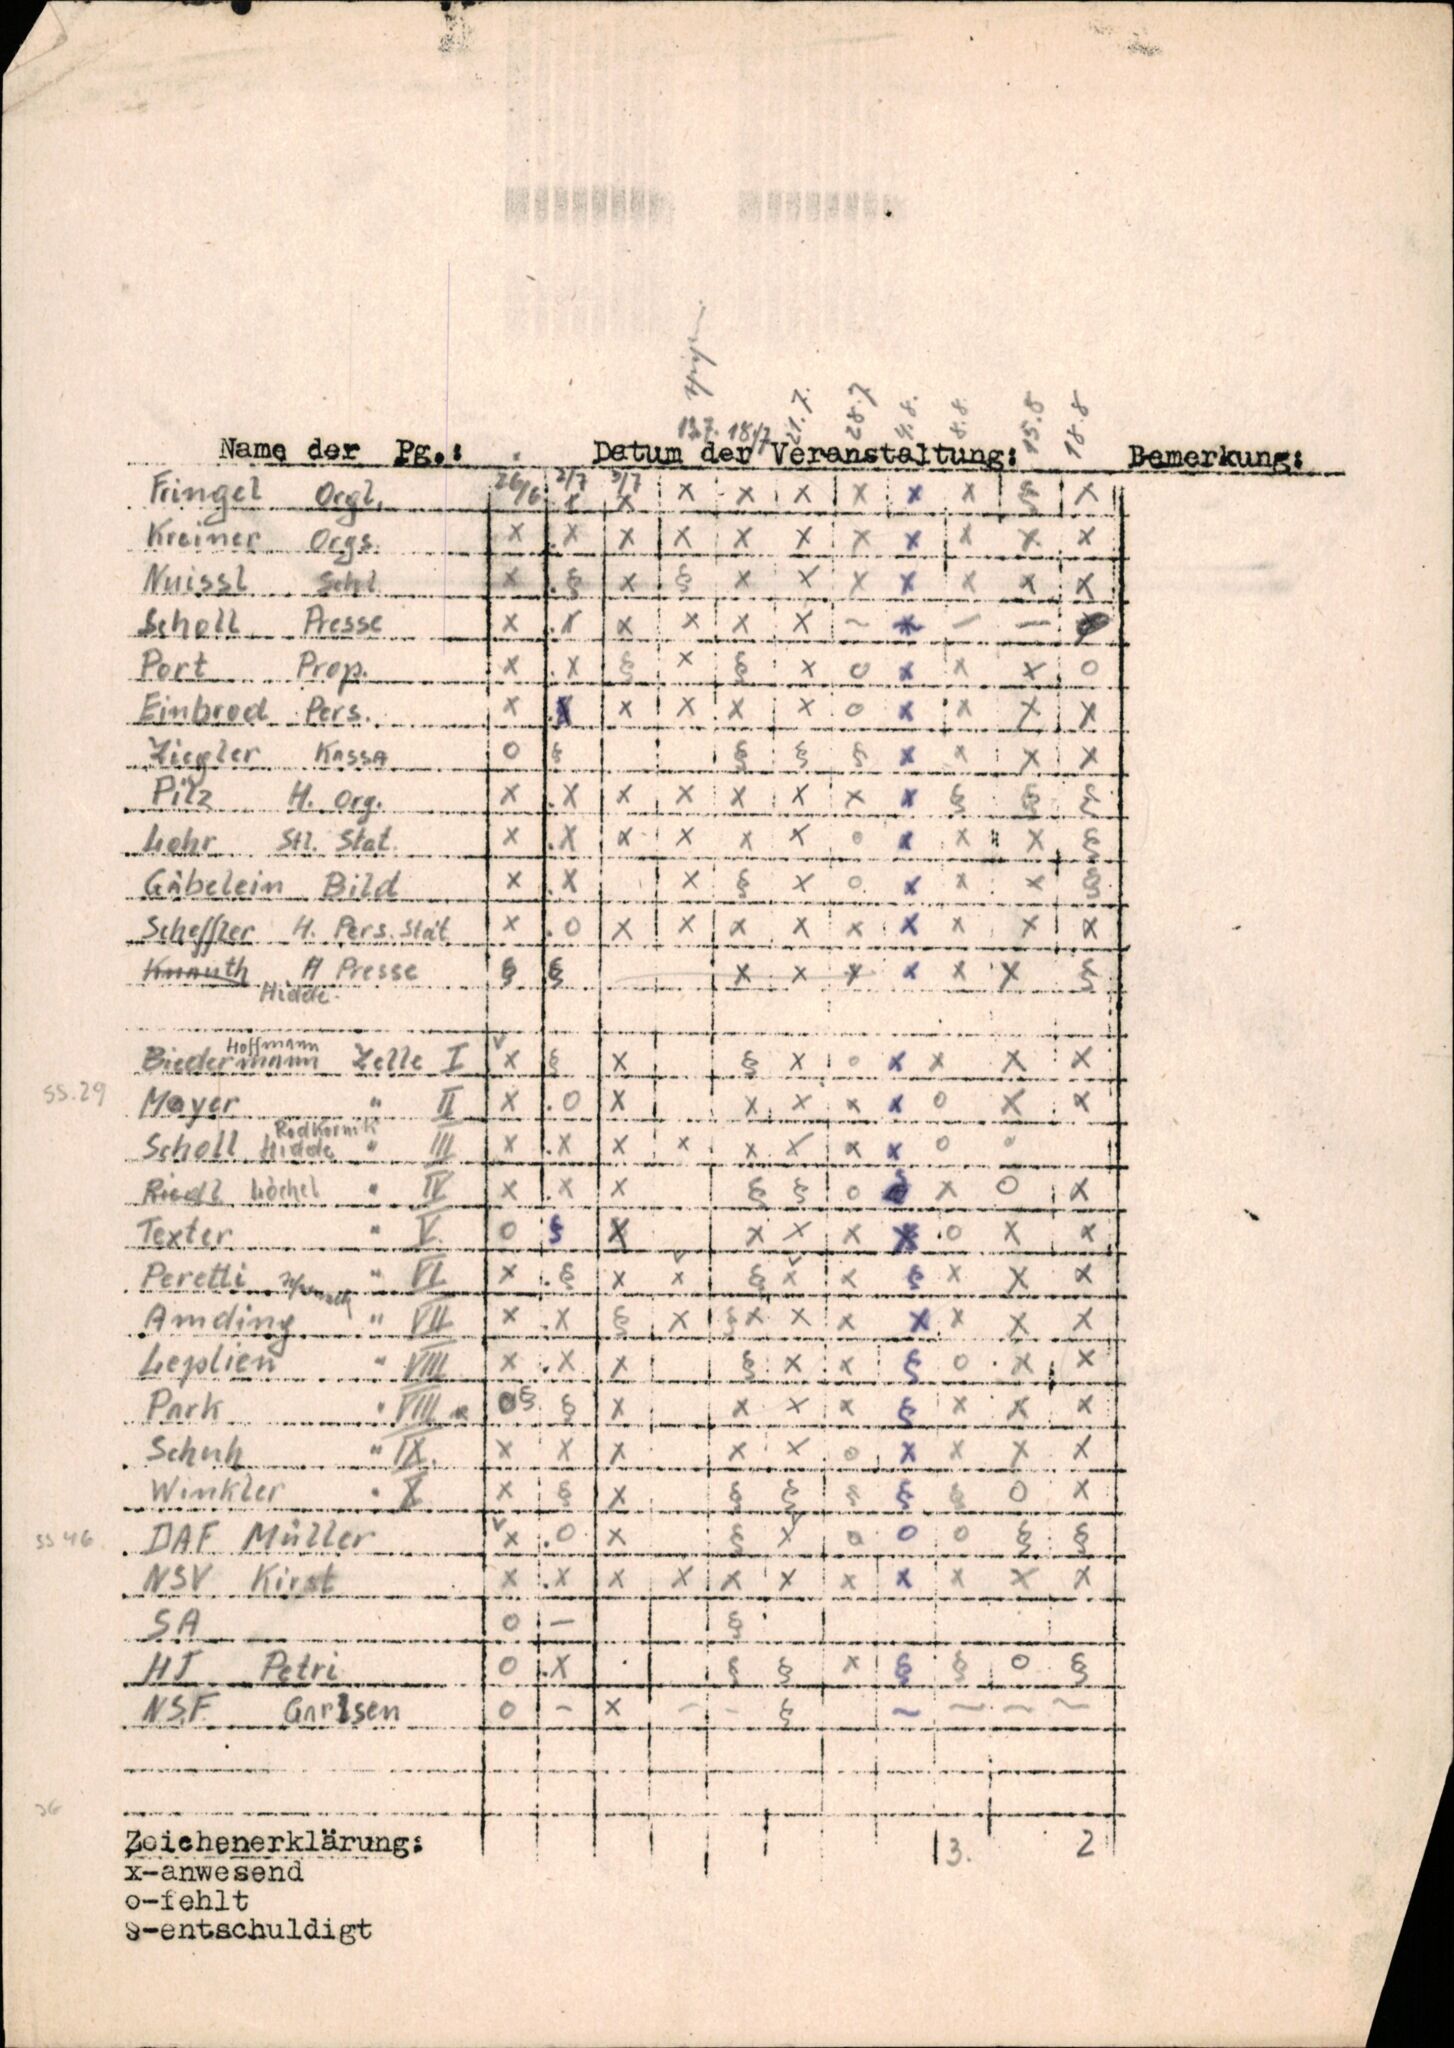 13.7. 18/7 21.7. 28.7 4.8. 8.8. 15.8 18.8
Name der Pg.: Datum der Veranstaltung: Bemerkung:
26/6 2/7 5/7
Fringel Orgl. x x x x x x x x § x
Kreiner Orgs. x x x x x x x x x x x
Nuissl Schl x § x § x x x x x x x
Scholl Presse x x x x x x ~ x — —
Port Prop. x x § x § x o x x x o
Einbrod Pers. x x x x x x o x x x x
Ziegler Kassa o § § § § x x x x
Pilz H. Org. x x x x x x x x § § §
Lohr Stl. Stat. x x x x x x o x x x §
Gäbelein Bild x x x § x o x x x §
Scheffler H. Pers. Stat x o x x x x x x x x x
Knauth H Presse § § x x x x x x §
Hidde
Hoffmann
Biedermann Zelle I x § x § x o x x x x
SS.29 Mayer " II x o x x x x x o x x
Rodkornik
Scholl Hidde " III x x x x x x x x o o
Riedl Löchel " IV x x x § § o § x o x
Texter " V. o § x x x x x o x x
Peretti " VI x § x x § x x § x x x
Amding " VII x x § x § x x x x x x x
Leplien " VIII x x x § x x § o x x
Park " VIII a o§ § x x x x § x x x
Schuh " IX. x x x x x o x x x x
Winkler " X x § x § § § § § o x
SS 46 DAF Müller x o x § x o o o § §
NSV Kirst x x x x x x x x x x x
SA o — §
HJ Petri o x § § x § § o §
NSF Garlsen o — x – – § ~ ~ ~ ~
26
Zeichenerklärung: 3. 2
x-anwesend
o-fehlt
§-entschuldigt